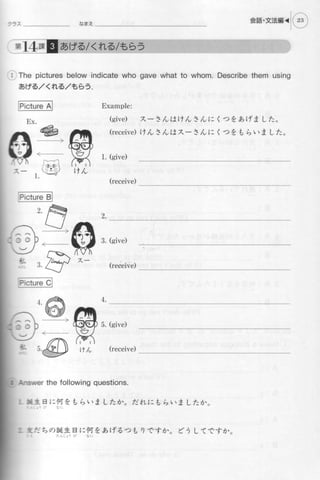 クラス
なまえ
会話・文法編 ◀ 23
第14課 3 あげる/くれる/もらう
① The pictures below indicate who gave what to whom. Describe them using
あげる/くれる/もらう.
Picture A
Ex.
スー
1.
けん
Example:
(give) スーさんはけんさんにくつをあげました。
(receive) けんさんはスーさんにくつをもらいました。
1. (give)
(receive)
Picture B
2.
私
3.
スー
2.
3. (give)
(receive)
Picture C
4.
私
5.
けん
4.
5. (give)
(receive)
② Answer the following questions.
1. 誕生日に何をもらいましたか。だれにもらいましたか。
2. 友だちの誕生日に何をあげるつもりですか。どうしてですか。